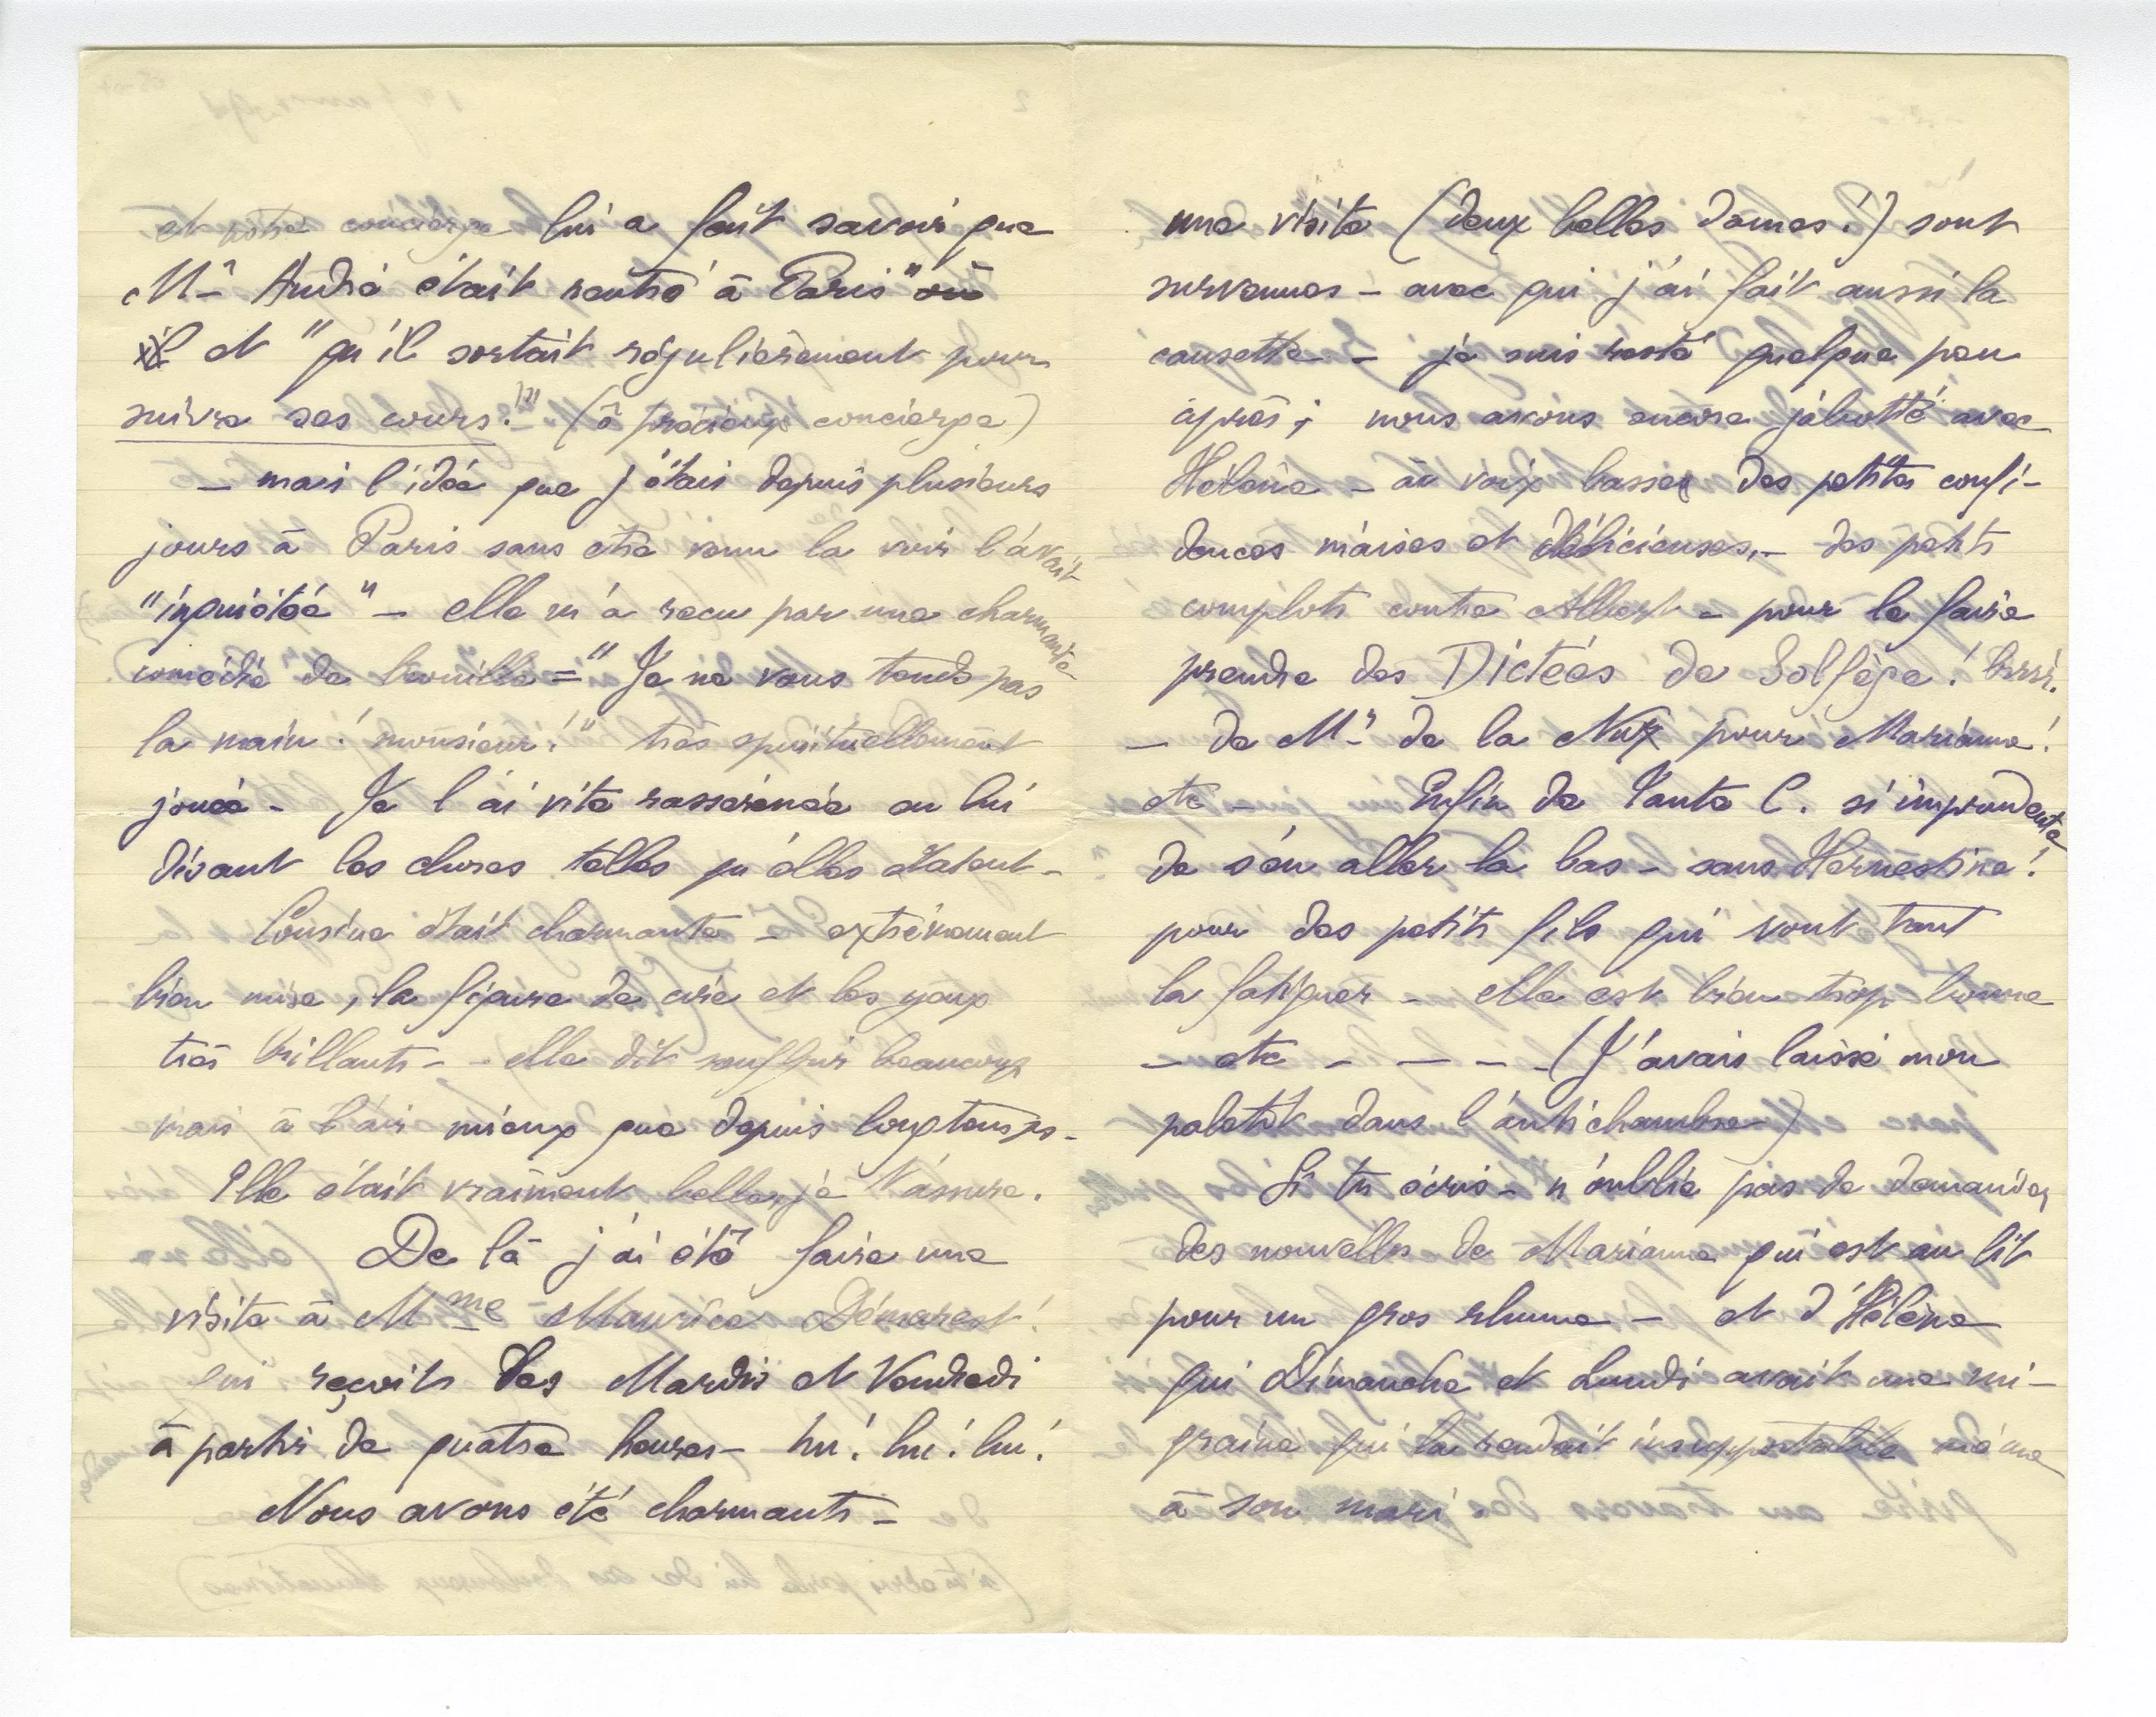 et notre concierge lui a fait savoir que
Mr André était rentré à Paris" où
il et "qu'il sortait régulièrement pour
suivre ses cours!" (ô précieux concierge)
– mais l'idée que j'étais depuis plusieurs
jours à Paris sans être venu la voir l'avait
"inquiétée" – elle m'a reçu par une charmante
comédie de brouille = "Je ne vous tends pas
la main! monsieur!" très spirituellement
jouée – Je l'ai vite rassérénée en lui
disant les choses telles qu'elles étaient –
Cousine était charmante – extrêmement
bien mise, la figure de cire et les yeux
très brillants – elle dit souffrir beaucoup
mais a l'air mieux que depuis longtemps –
Elle était vraiment belle, je t'assure.
De là j'ai été faire une
visite à Mme Maurice Démarest!
qui reçoit les Mardis et Vendredi
à partir de quatre heures – hu! hu! hu!
Nous avons été charmants –
une visite (deux belles dames!) sont
survenues – avec qui j'ai fait aussi la
causette – je suis resté quelque peu
après; nous avons encore jaboté avec
Hélène – à voix basse des petites confi-
dences niaises et délicieuses, – des petits
complots contre Albert – pour le faire
prendre des Dictées de Solfège! brrr!
– de Mr de la Nux pour Marianne!
etc – Enfin de Tante C. si imprudente
de s'en aller là bas – sans Hernestine!
pour des petits fils qui vont tant
la fatiguer – elle est bien trop bonne
– etc – – – – (J'avais laissé mon
paletot dans l'antichambre)
Si tu écris – n'oublie pas de demander
des nouvelles de Marianne qui est au lit
pour un gros rhume – et d'Hélène
qui Dimanche et Lundi avait une mi-
graine qui la rendait insupportable même
à son mari.